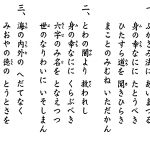 一、ふかきみ法に あいまつる
身の幸なにに たとうべき
ひたすら道を 聞きひらき
まことのみむね いただかん
二、とわの闇より 救われし
身の幸なにに くらぶべき
六字のみ名を となえつつ
世のなりわいに いそしまん
三、海の内外の へだてなく
みおやの徳の とうときを